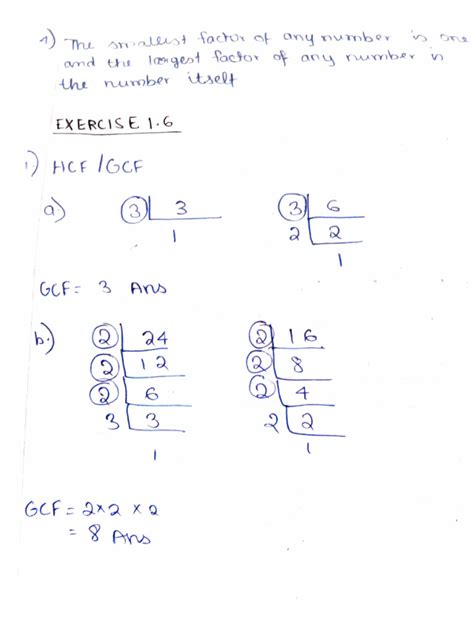 1) The smallest factor of any number is one
and the largest factor of any number is
the number itself
EXERCISE 1.6
1.) HCF/GCF
a)
3 3
1
3 6
2 2
1
GCF = 3 Ans
b.)
2 24
2 12
2 6
3 3
1
2 16
2 8
2 4
2 2
1
GCF = 2×2×2
= 8 Ans